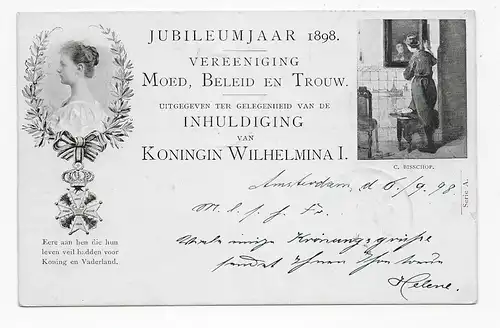 JUBILEUMJAAR 1898.
VEREENIGING
MOED, BELEID EN TROUW.
UITGEGEVEN TER GELEGENHEID VAN DE
INHULDIGING
VAN
KONINGIN WILHELMINA I.
Eere aan hen die hun
leven veil hadden voor
Koning en Vaderland.
C. BISSCHOP.
Serie A.
Amsterdam, d 6/9. 98
M. l. s. h. Fr.
Viele innige Krönungsgrüße
sendet Ihnen Ihre treue
Helene.